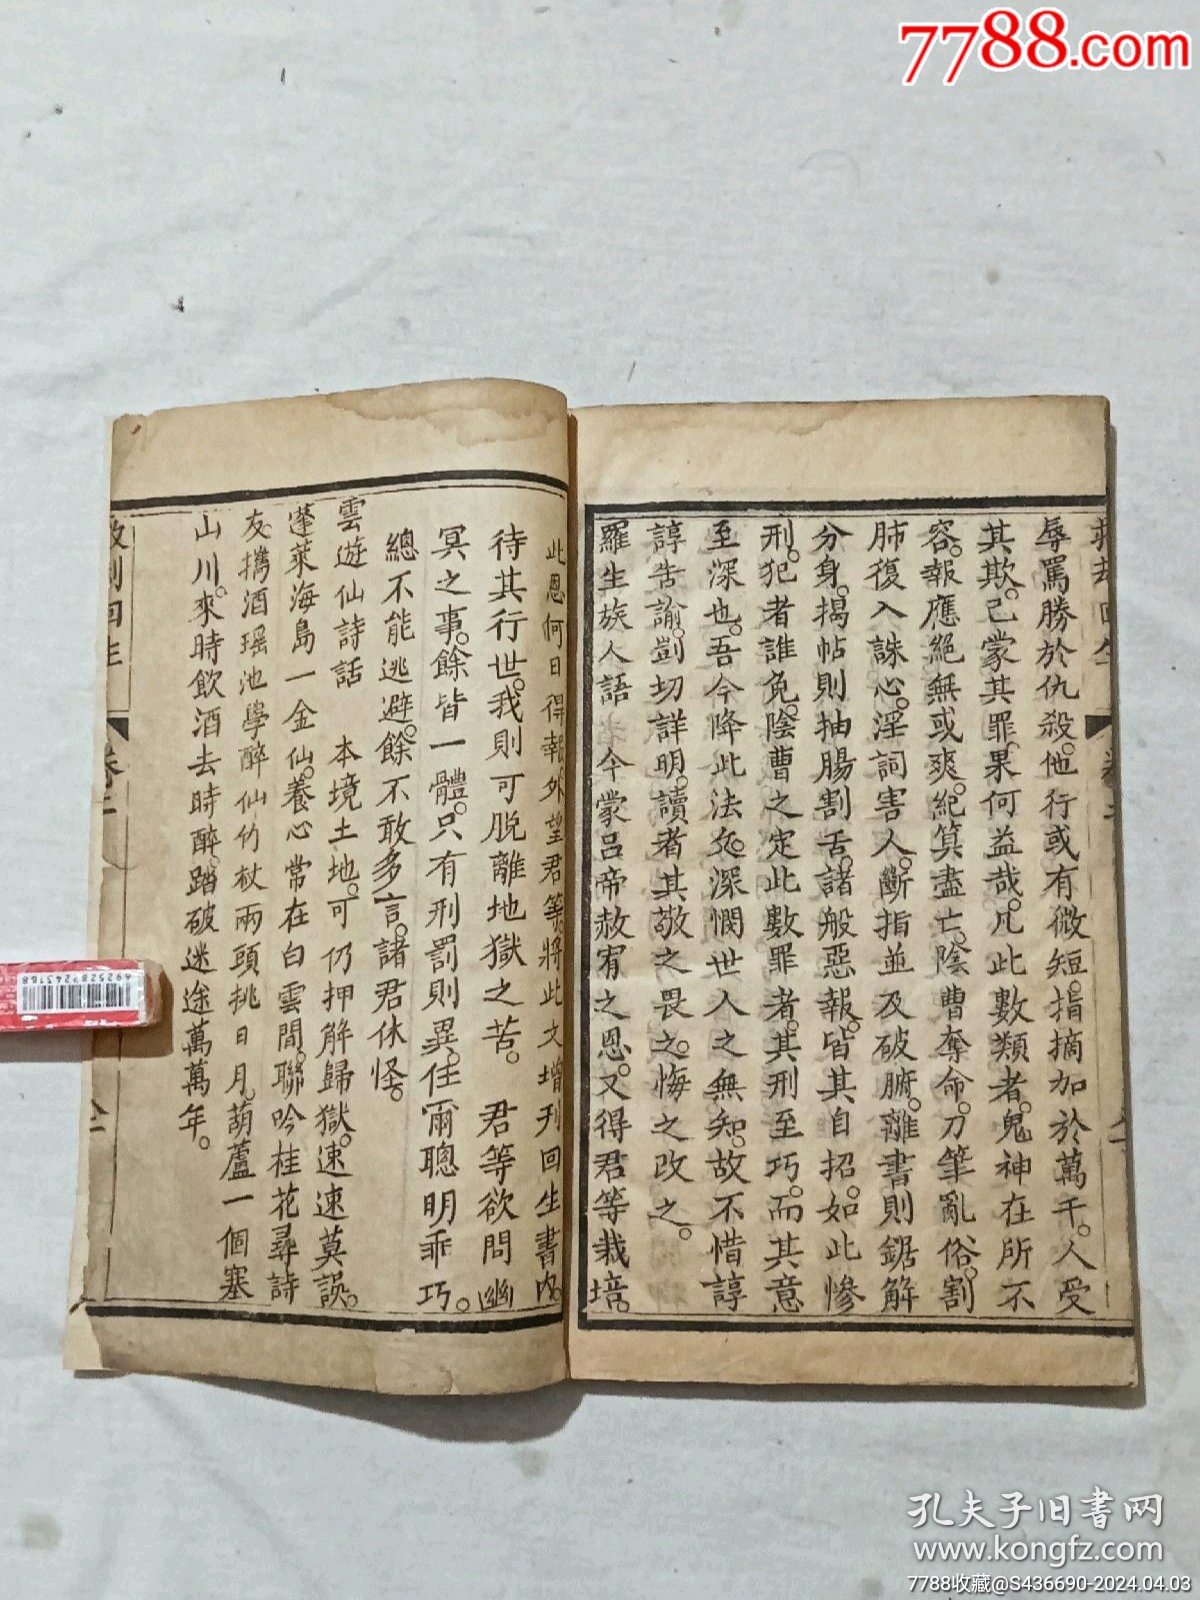 7788.com
救劫回生
卷二
辱罵勝於仇殺。他行或有微短。指摘加於萬千。人受
其欺。己蒙其罪。果何益哉。凡此數類者。鬼神在所不
容。報應絕無或爽。紀算盡亡。陰曹奪命。刀筆亂俗。割
肺復入誅心。淫詞害人。斷指並及破腑。離書則鋸解
分身。揭帖則抽腸割舌。諸般惡報。皆其自招。如此慘
刑。犯者誰免。陰曹之定此數罪者。其刑至巧。而其意
至深也。吾今降此法痊。深憫世人之無知。故不惜諄
諄告諭。剴切詳明。讀者其敬之畏之。悔之改之。
羅生族人語 今蒙呂帝赦宥之恩。又得君等栽培。
此恩何日得報。外望君等。將此文增刊回生書內。
待其行世。我則可脫離地獄之苦。 君等欲問幽
冥之事。餘皆一體。只有刑罰則異。任爾聰明乖巧。
總不能逃避。餘不敢多言。諸君休怪。
雲遊仙詩話 本境土地。可仍押解歸獄。速速莫誤。
蓬萊海島一金仙。養心常在白雲間。聯吟桂花尋詩
友。攜酒瑤池學醉仙。竹杖兩頭挑日月。葫蘆一個塞
山川。來時飲酒去時醉。踏破迷途萬萬年。
救劫回生
卷二
6925282924516
孔夫子旧书网
www.kongfz.com
7788收藏@S436690-2024.04.03